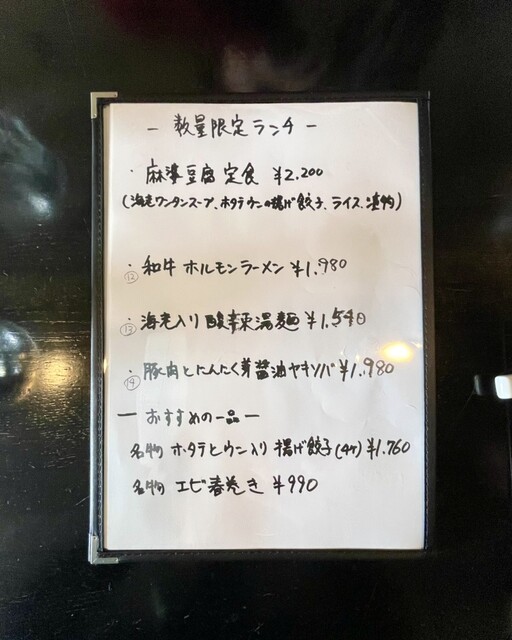 ー 数量限定ランチ ー
・ 麻婆豆腐 定食 ¥2.200
(海老ワンタンスープ、ホタテウニの揚げ餃子、ライス、漬物)
・ ⑫ 和牛 ホルモンラーメン ¥1.980
・ ⑬ 海老入り 酸辛湯麺 ¥1.540
・ ⑭ 豚肉とにんにく芽醤油ヤキソバ ¥1.980
ー おすすめの一品 ー
名物 ホタテとウニ入り 揚げ餃子(4ケ) ¥1.760
名物 エビ春巻き ¥990